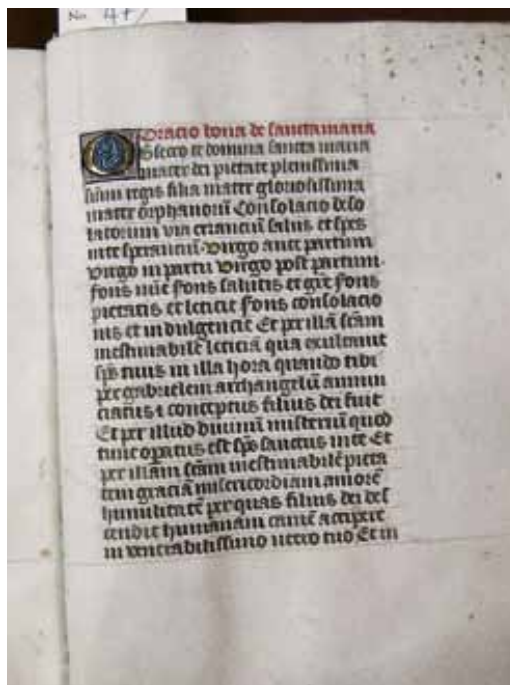 No 47
Oracio bona de sancta maria
Obsecro te domina sancta maria
mater dei pietate plenissima
sūm̄i regis filia mater gloriosissima
mater orphanorū Consolacio deso
latorum via erranciū salus et spes
in te speranciū. Virgo ante partum
virgo in partu virgo post partum.
fons mīe fons salutis et grē fons
pietatis et leticie fons consolacio
nis et indulgencie Et per illā scām
inestimabilē leticiā qua exultauit
sp̄s tuus in illa hora quando tibi
per gabrielem archangelū annun
ciatus ⁊ conceptus filius dei fuit
Et per illud diuinū misteriū quod
tunc operatus est sp̄s sanctus in te Et
per illam scām inestimabilē pieta
tem graciā misericordiam amorē
humilitatē per quas filius dei des
cendit humanam carnē accipere
in venerabilissimo utero tuo Et in